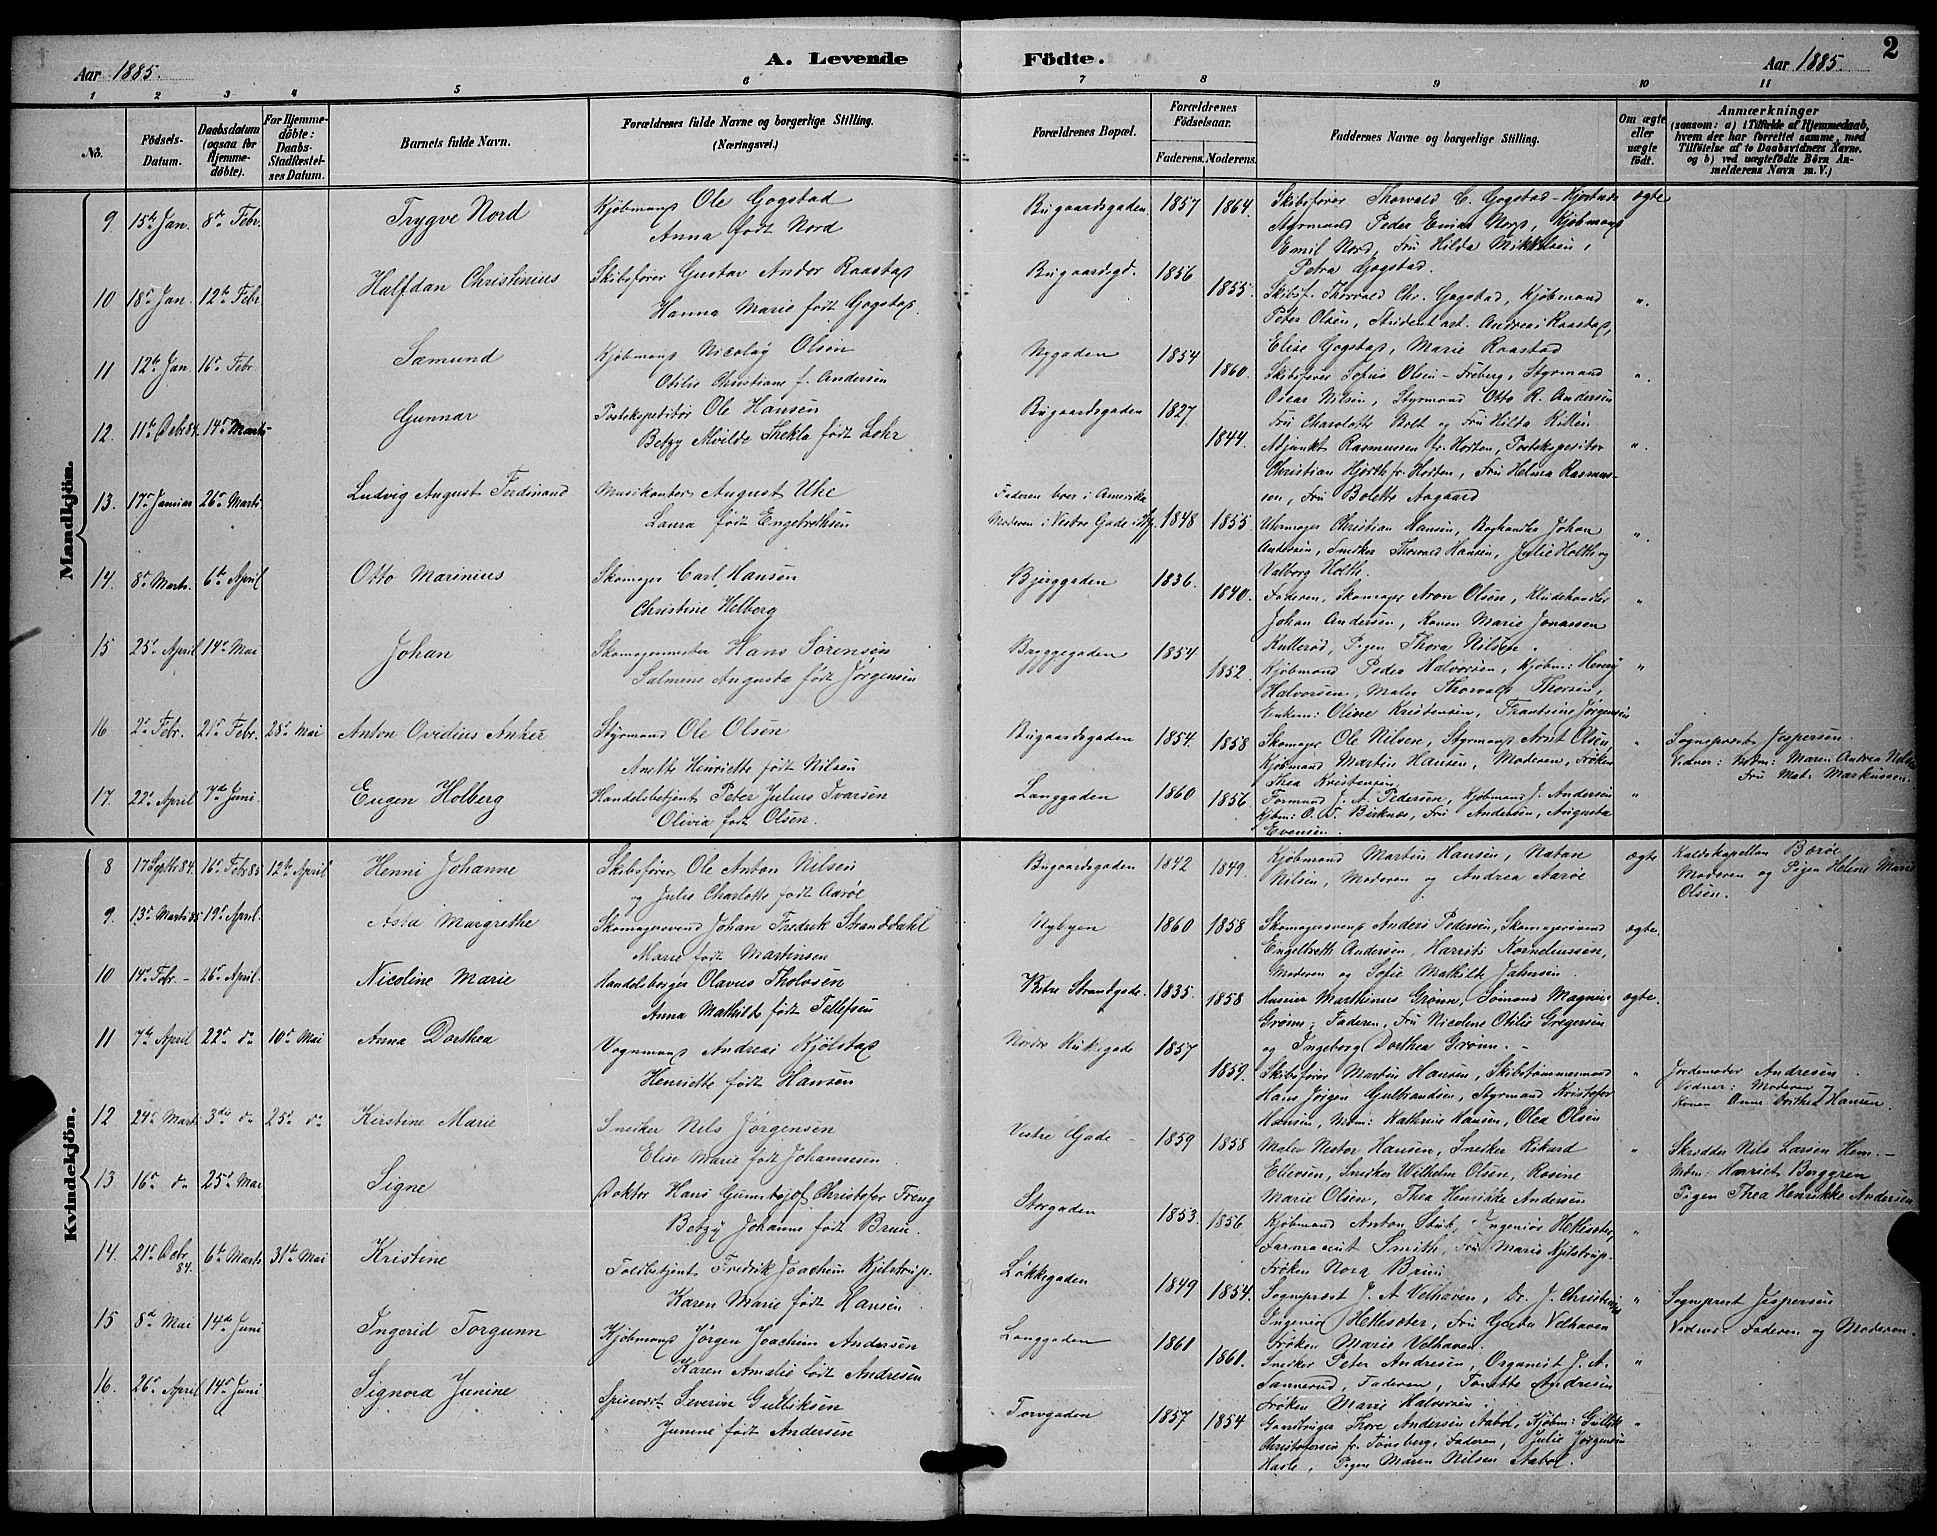 Aar 1885.
A. Levende Födte.
Aar 1885.
2
1 2 3 4 5 6 7 8 9 10 11
No.
Födsels-Datum.
Daabsdatum (ogsaa for Hjemmedöbte).
For Hjemmedöbte: Daabs-Stadfæstelses Datum.
Barnets fulde Navn.
Forældrenes fulde Navne og borgerlige Stilling. (Næringsvei.)
Forældrenes Bopæl.
Forældrenes Födselsaar.
Faderens. Moderens.
Faddernes Navne og borgerlige Stilling.
Om ægte eller uægte födt.
Anmærkninger
(saasom: a) i Tilfælde af Hjemmedaab, hvem der har forrettet samme, med Tilföielse af to Daabsvidners Navne. og b) ved uægtefödte Börn Anmelderens Navn m. V.)
Mandkjön.
9 15de Jan. 8de Febr. Trygve Nord
Kjøbmand Ole Gogstad
Anna født Nord
Bugaardsgaden 1857 1864.
Skibsfører Thorvald C. Gogstad
Styrmand Peder Kjøbmand
Emil Nord, Fru Hilda Mikkelsen,
Petra Gogstad.
ægte
10 18de Jan. 12te Febr Halfdan Christinius
Skibsfører Gustav Andor Raastad
Hanna Marie født Gogstad.
Bugaardsgd. 1856 1855.
Skibsf. Thorvald Chr. Gogstad, Kjøbmand
Peter Olsen, Student art. Andreas Raastad,
Elise Gogstad, Marie Raastad
".
11 12te Jan 16de Febr. Sæmund
Kjøbmand Nicolay Olsen
Otilie Christiane f. Andersen
Nygaden 1854 1860.
Skibsfører Sofus Olsen - Freberg, Styrmand
Oscar Nilsen, Styrmand Otto R. Andersen
Fru Charlotte Bolt og Fru Hilda Rillén
".
12. 11te Debr 84. 14de Marts Gunnar
Postekspeditør Ole Hansen
Betzy Alvilde Thekla født Lohr
Bugaardsgaden 1827 1844.
Adjunkt Rasmussen fr. Horten, Postekspeditør
Christian Hjorth fr. Horten, Fru Helma Rasmussen, Fru Bolette Aagaard
".
13. 17de Januar 26de Marts Ludvig August Ferdinand
Musikanter August Uhe
Laura født Engebrethsen
Faderen boer i Amerika
Moderen i Vestre Gade 1848 1855
Uhrmager Christian Hansen, Boghandler Johan
Andersen, Snedker Thorvald Hansen, Julie Holth og
Valborg Holth.
".
14. 8de Marts. 6te April Otto Marinius
Skomager Carl Hansen
Christine Helberg
Bjerggaden 1836. 1840.
Faderen, Skomager Aron Olsen, Kludehandler
Johan Andersen, Konen Marie Jonassen
Kullerød, Pigen Thora Nilsen.
"
15 25de April 14de Mai Johan
Skomagermester Hans Sørensen
Salmine Augusta født Jørgensen
Bryggegaden 1854 1852.
Kjøbmand Peder Halvorsen, Kjøbm: Henrij
Halvorsen, Maler Thorvald Thorsen,
Enkem: Oline Kristensen, Frantsine Jørgensen
"
16 2de Febr. 21de Febr. 28de Mai Anton Ovidius Anker
Styrmand Ole Olsen
Anette Henriette født Nilsen
Bugaardsgaden 1854. 1858
Skomager Ole Nilsen, Styrmand Arnt Olsen,
Kjøbmand Martin Hansen, Moderen, Frøken
Thea Kristensen
" Sognepræst Jespersen.
Vidner: Mdm: Maren Andrea Nilsen
Fru Mat. Markussen.
17. 22de April 7de Juni. Eugen Holberg
Handelsbetjent Peter Julius Ivarsen
Olivia født Olsen.
Langgaden 1860 1856.
Formand J. A. Pedersen, Kjøbmand J. Andersen
Kjøbm: O. T. Birknes, Fru Andersen, Augusta
Evensen.
"
Kvindekjön.
8 17 Septbr 84. 16de Febr 85 12te April Henni Johanne
Skibsfører Ole Anton Nilsen
og Julie Charlotte født Aarøe
Bugaardsgaden 1842 1849.
Kjøbmand Martin Hansen, Natan
Nilsen, Moderen og Andrea Aarøe
ægte Kaldskapellan Børøe
Moderen og Pigen Helene Marie
Olsen.
9. 13de Marts 85 19de April. Asta Margrethe
Skomagersvend Johan Fredrik Stranddahl
Marie født Martinsen
Nybyen 1860 1858
Skomagersvend Anders Pedersen, Skomagersvend
Engelbreth Andersen, Harriet Korneliussen,
Moderen og Sofie Mathilde Jahnsen.
ægte.
10 14de Febr. - 26de April. Nicoline Marie
Handelsborger Olavus Tholvsen
Anna Mathilde født Tellefsen
Vestre Strandgade. 1835. 1858
Huseier Marthinus Grønn, Sømand Magnus
Grønn, Faderen, Fru Nicoline Otilie Gregersen
og Ingeborg Dorthea Grønn. -
ægte.
11 7de April 22de do 10de Mai Anna Dorthea
Vognmand Andreas Kjølstad
Henriette født Hansen
Nordre Kirkegade 1857 1859.
Skibsfører Martin Hansen, Skibstømmermand
Hans Jørgen Gulbrandsen, Styrmand Kristofer
Hansen, Mdm: Kathrine Hansen, Olea Olsen
" Jordemoder Andresen.
Vidner: Moderen
Konen Anne Dorthea Hansen.
12 24de Marts 3die do 25de do Kirstine Marie
Snedker Nels Jørgensen
Elise Marie født Johannesen
Vestre Gade - 1859 1858
Maler Nestor Hansen, Snedker Rikard
Ellevsen, Snedker Wilhelm Olsen, Rosine
Marie Olsen, Thea Henrikke Andersen
" Skrædder Nils Larsen Hem. -
Mdm. Harriet Berggren
Pigen Thea Henrikke Andersen
13 16de do 25de Mai Signe
Doktor Hans Gunnbjof Christofer Freng
Betzy Johanne født Bruu
Storgaden 1853. 1856
Kjøbmand Anton Stub, Ingeniør Hellesøter,
Farmaceut Smith, Fru Marie Kjelstrup.
Frøken Nora Bruu
"
14. 21de Debr 84. 6te Marts 31te Mai Kristine
Toldbetjent Fredrik Joachim Kjelstrup.
Karen Marie født Hansen
Løkkegaden 1849 1854.
Sogneprest J. A. Velhaven, Dr. J.
Ingeniør Hellesøter, Fru Velhaven
Frøken Marie Velhaven.
" Sogneprest Jespersen
Vidner: Faderen og Moderen.
15 8de Mai 14de Juni Ingerid Torgunn
Kjøbmand Jørgen Joachim Andersen
Karen Amalie født Andresen
Langgaden 1860 1860.
Snedker Peter Andresen, Organist J. A.
Sannerud, Faderen, Tonette Andresen
Frøken Marie Halvorsen.
"
16. 26de April 14de Juni Signora Junine
Spisevært Severin Gulliksen
Junine født Andersen
Torvgaden 1857 1854
Gaardbruger Thore Andersen Aabol, Kjøbm: Gullik
Christofersen fr. Tønsberg, Faderen, Julie Jørgensen
Hasle, Pigen Maren Nilsen Aabol.
"